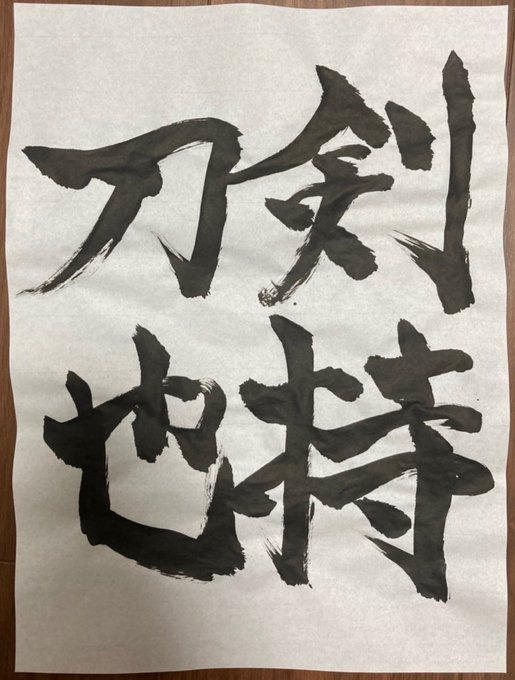 剣持
刀也